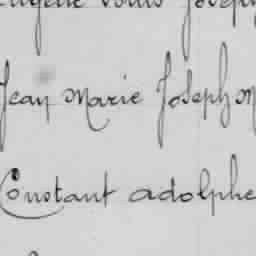 Eugène Louis Joseph
Jean Marie Joseph
Constant adolphe